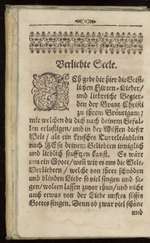 Verliebte Seele.
Ich gebe dir hier die Geist-
lichen Hirten-Lieder/
und liebreiche Begier-
den der Braut Christi
zu jhrem Bräutigam;
mit welchen du dich nach deinem Gefal-
len erlustigen/ und in der Wüsten dieser
Welt/ als ein keusches Turteltäublein
nach JEsu deinem Geliebten inniglich
und lieblich seufftzen kanst. Es wäre
ein Spott/ weil wir es nun die Welt-
Verliebten/ welche von jhrer schnöden
und blinden Liebe so viel singen und sa-
gen/ wolten lassen zuvor thun/ und nicht
auch etwas von der Liebe unsers süssen
Gottes singen. Denn ob zwar viel schöne
und